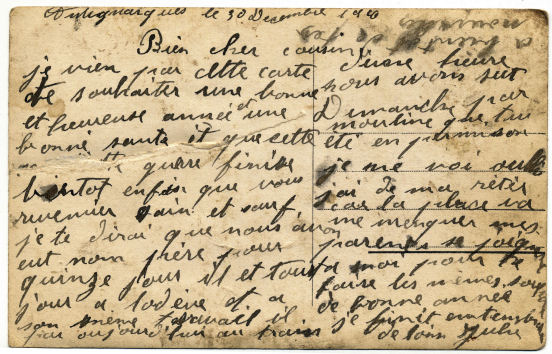 le 30 decembre
Bien cher cousin
je vien par cette carte
te souhaiter une bonne
et heureuse année et une
bonne santé et que cette
guerre finise
bientot enfin que vous
revenier sain et sauf
je te dirai que nous avon
eut nom frère pour
quinze jour il et toust
jour a lodève et a
son même travail il
aujourd'hui au train
d'une heure
nous avons sut
Dimanche par
que tu
été en permision
je me voi
de ma
car la place va
me menquer mes
parents se
a moi pour te
faire les mêmes
de bonne année
je finit en
de loin Julie
a bientot de tes
nouvelles